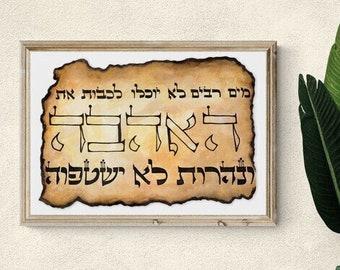 מים רבים לא יוכלו לכבות את
האהבה
ונהרות לא ישטפוה